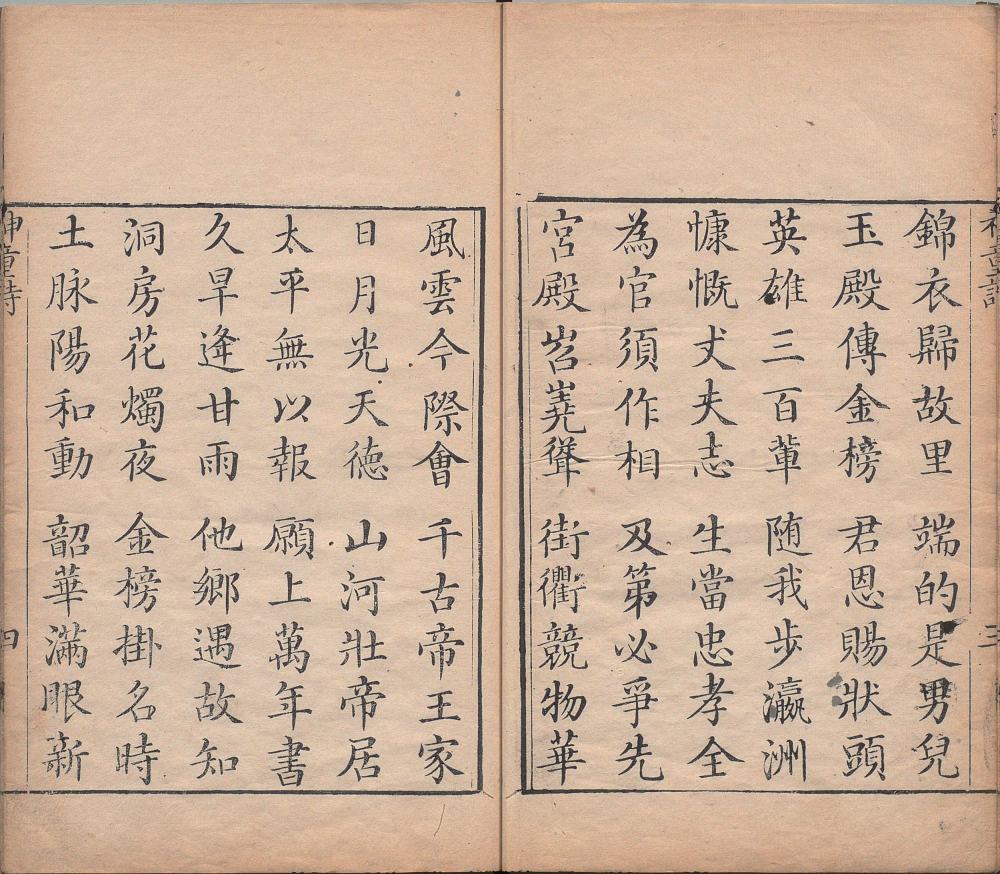 錦衣歸故里 端的是男兒
玉殿傳金榜 君恩賜狀頭
英雄三百輩 随我步瀛洲
慷慨丈夫志 生當忠孝全
為官須作相 及第必爭先
宮殿岧嶤聳 街衢競物華
三
風雲今際會 千古帝王家
日月光天德 山河壯帝居
太平無以報 願上萬年書
久旱逢甘雨 他鄉遇故知
洞房花燭夜 金榜掛名時
土脉陽和動 韶華滿眼新
神童詩
四